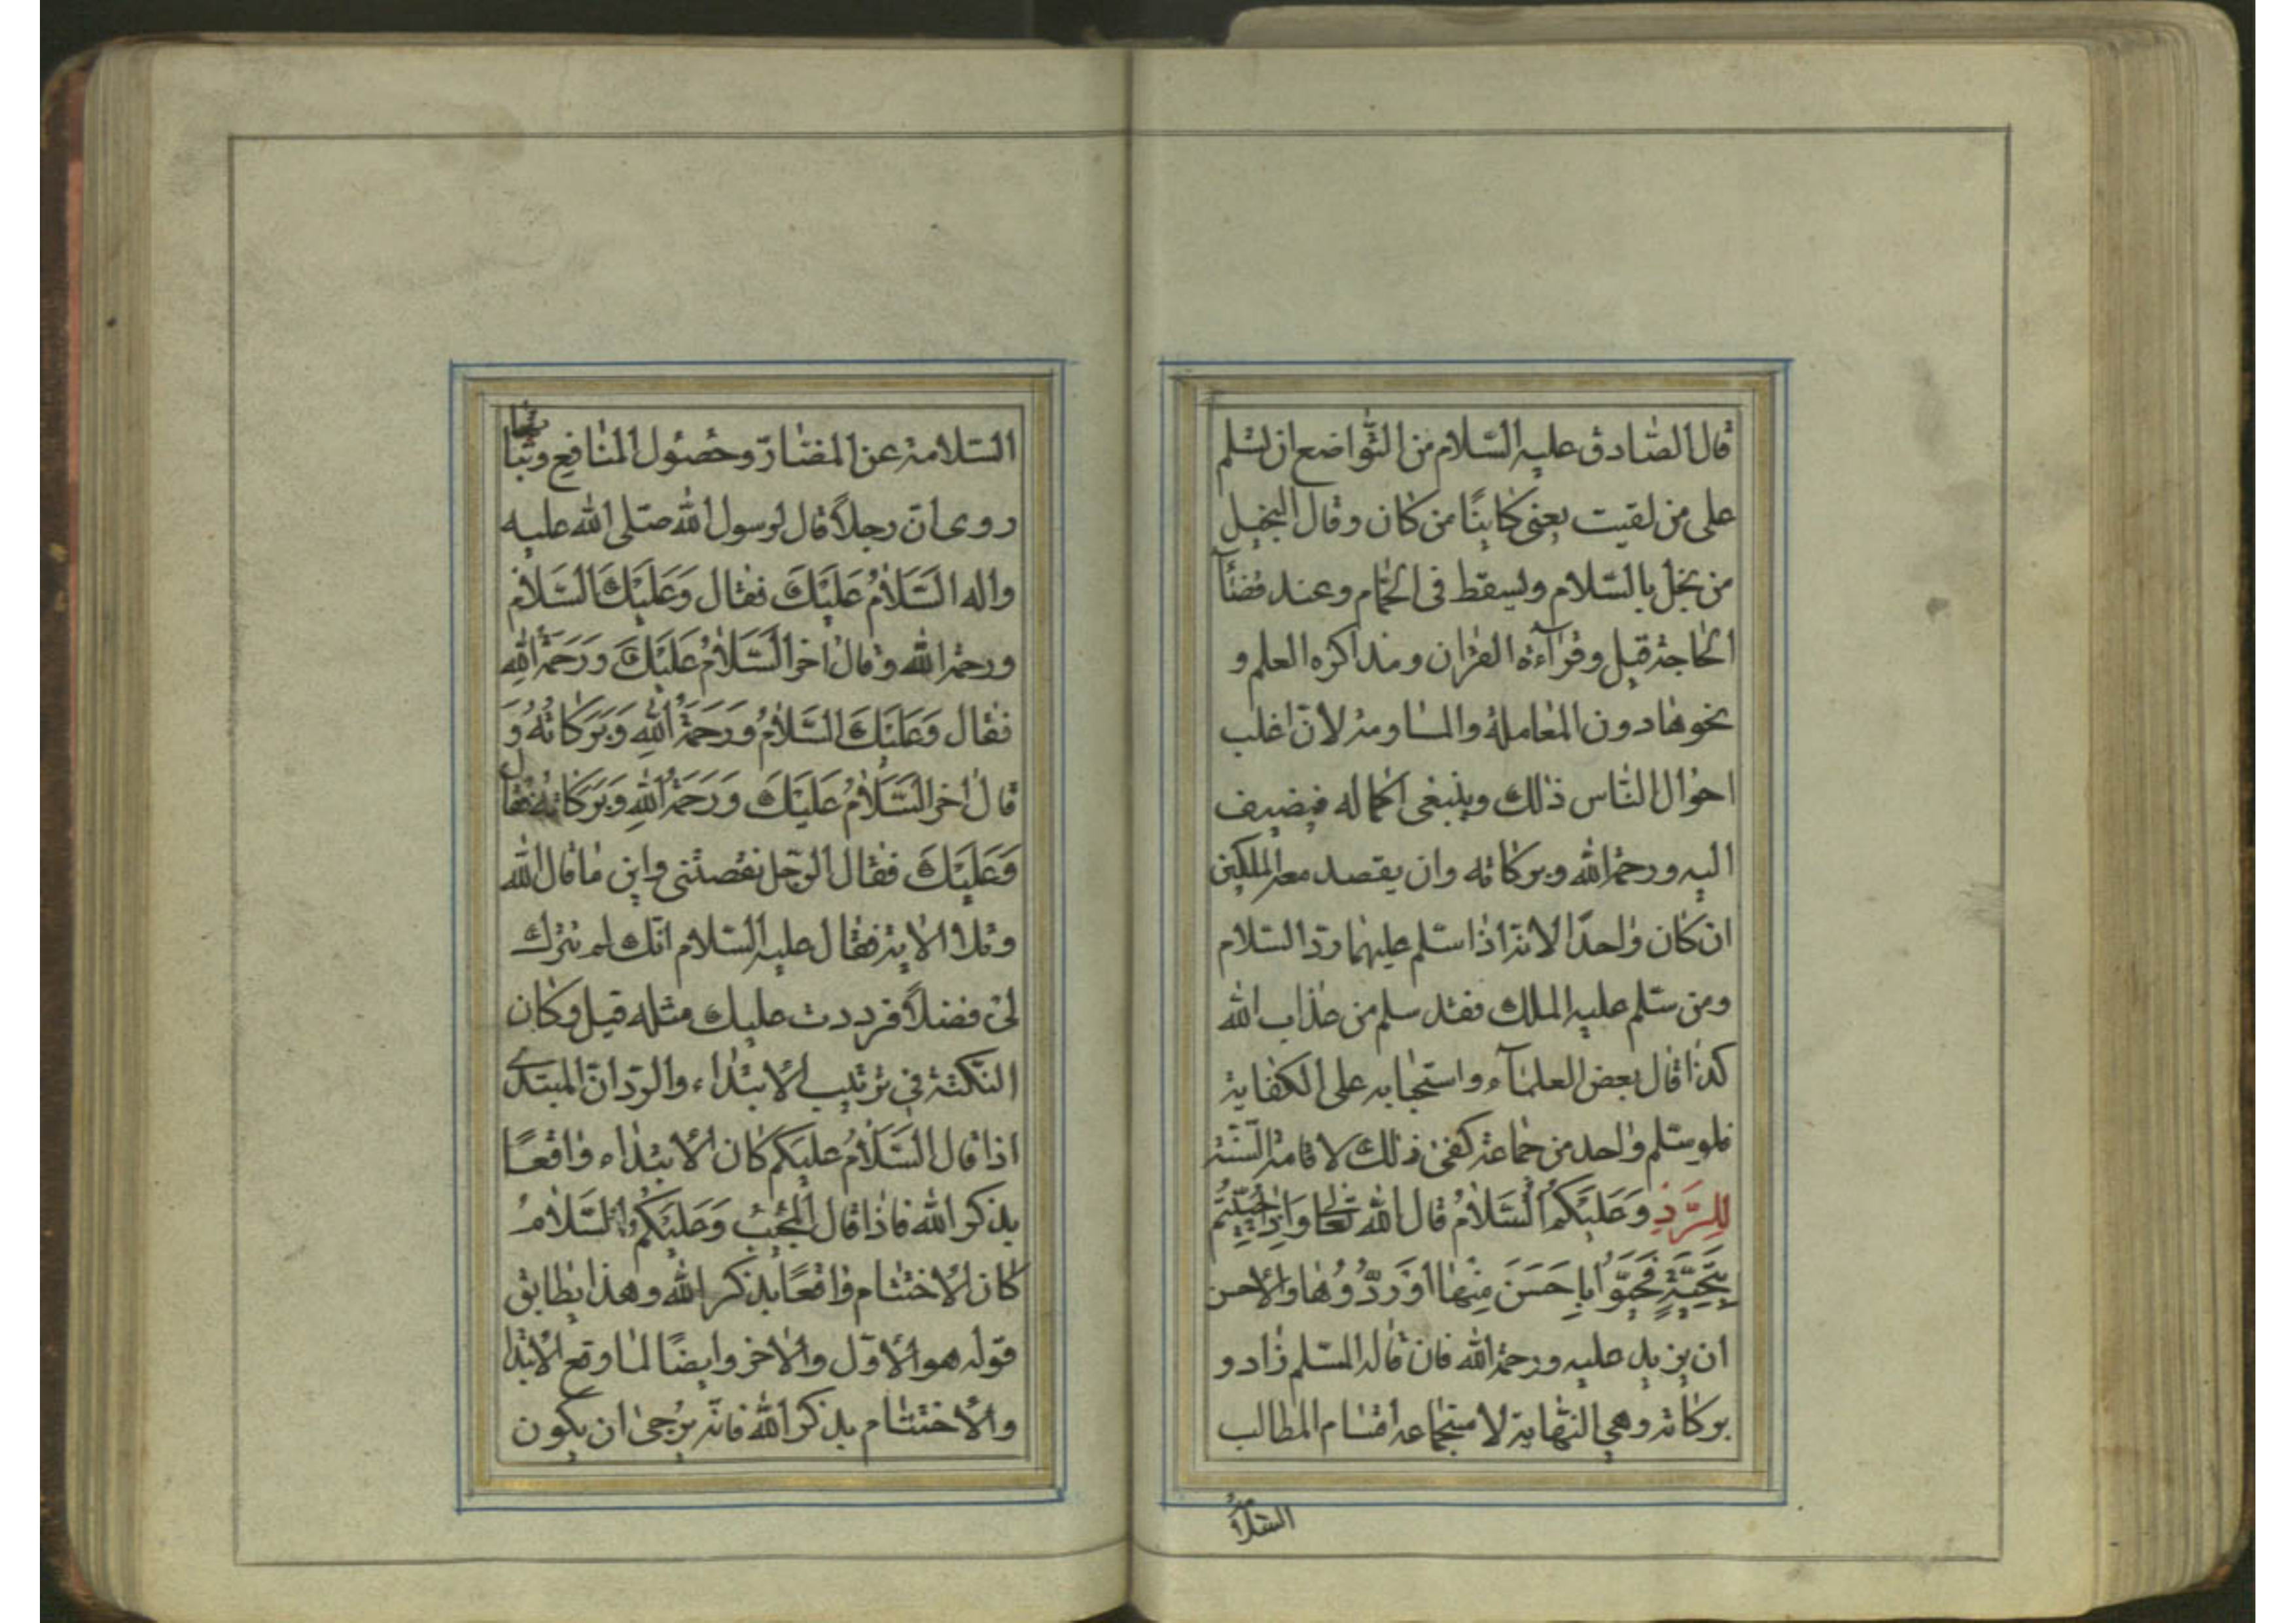 قال الصّادق عليه السّلام من التّواضع ان تسلم
على من لقيت يعنى كاينًا من كان وقال البخيل
من بخل بالسّلام ويسقط فى الحمّام وعند قضآء
الحاجة قيل وقرآءة القران ومذاكره العلم و
نحوها دون المعاملة والمساومة لانّ اغلب
احوال النّاس ذلك وينبغى اكماله فيضيف
اليه ورحمة الله وبركاته وان يقصد معه الملكين
ان كان واحدًا لانّه اذا سلّم عليهما ردّا السّلام
ومن سلّم عليه الملك فقد سلم من عذاب الله
كذا قال بعض العلمآء واستحبابه على الكفاية
فلو سلّم واحد من جماعة كفى ذلك لاقامة السّنّة
لِلرَّدِّ وَعَلَيْكُمُ السَّلَامُ قال الله تعالى وَاِذَا حُيّيتُم
بِتَحِيَّةٍ فَحَيُّوا بِاَحْسَنَ مِنْهَا اَوْ رُدُّوُهَا والاحسن
ان يزيد عليه ورحمة الله فان قاله المسلّم زاد و
بركاته وهى النّهاية لاستجماعه اقسام المطالب
السّلامة
السّلامة عن المضارّ وحصول المنافع وثباتها
روى انّ رجلًا قال لرسول الله صلّى الله عليه
واله السَّلَامُ عَلَيْكَ فقال وَعَلَيْكَ السَّلَامُ
ورحمة الله وقال اخر السَّلَامُ عَلَيْكَ وَرَحْمَةُ اللهِ
فقال وَعَلَيْكَ السَّلَامُ وَرَحْمَةُ اللهِ وَبَرَكَاتُهُ وَ
قال اخر السَّلَامُ عَلَيْكَ وَرَحْمَةُ اللهِ وَبَرَكَاتُهُ فقال
وَعَلَيْكَ فقال الرّجل نقصتنى واين ما قال الله
وتلا الاية فقال عليه السّلام انّك لم تترك
لى فضلًا فرددت عليك مثله قيل وكان
النّكتة فى ترتيب الابتداء والردّ انّ المبتدى
اذا قال السَّلَامُ عليكم كان الابتداء واقعًا
بذكر الله فاذا قال المجيب وَعَلَيْكُمُ السَّلَامُ
كان الاختتام واقعًا بذكر الله وهذا يطابق
قوله هو الاوّل والاخر وايضًا لما وقع الابتدا
والاختتام بذكر الله فانّه يرجى ان يكون